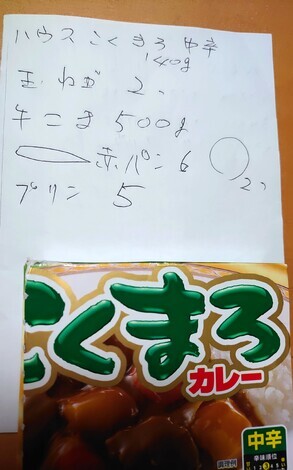 ハウス こくまろ 中辛
140g
玉ねぎ 2コ
牛こま 500g
赤パン 6
2コ
プリン 5
こくまろ
カレー
調理例
中辛
辛味順位